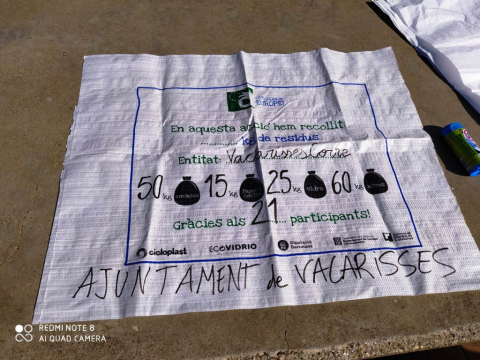 En aquesta acció hem recollit:
kg de residus
Entitat: Vacarisses Corre
50 kg 15 kg 25 kg VIDRE 60 kg
Gràcies als 21 participants!
cicloplast ECOVIDRIO Diputació Barcelona
AJUNTAMENT de VACARISSES
REDMI NOTE 8
AI QUAD CAMERA